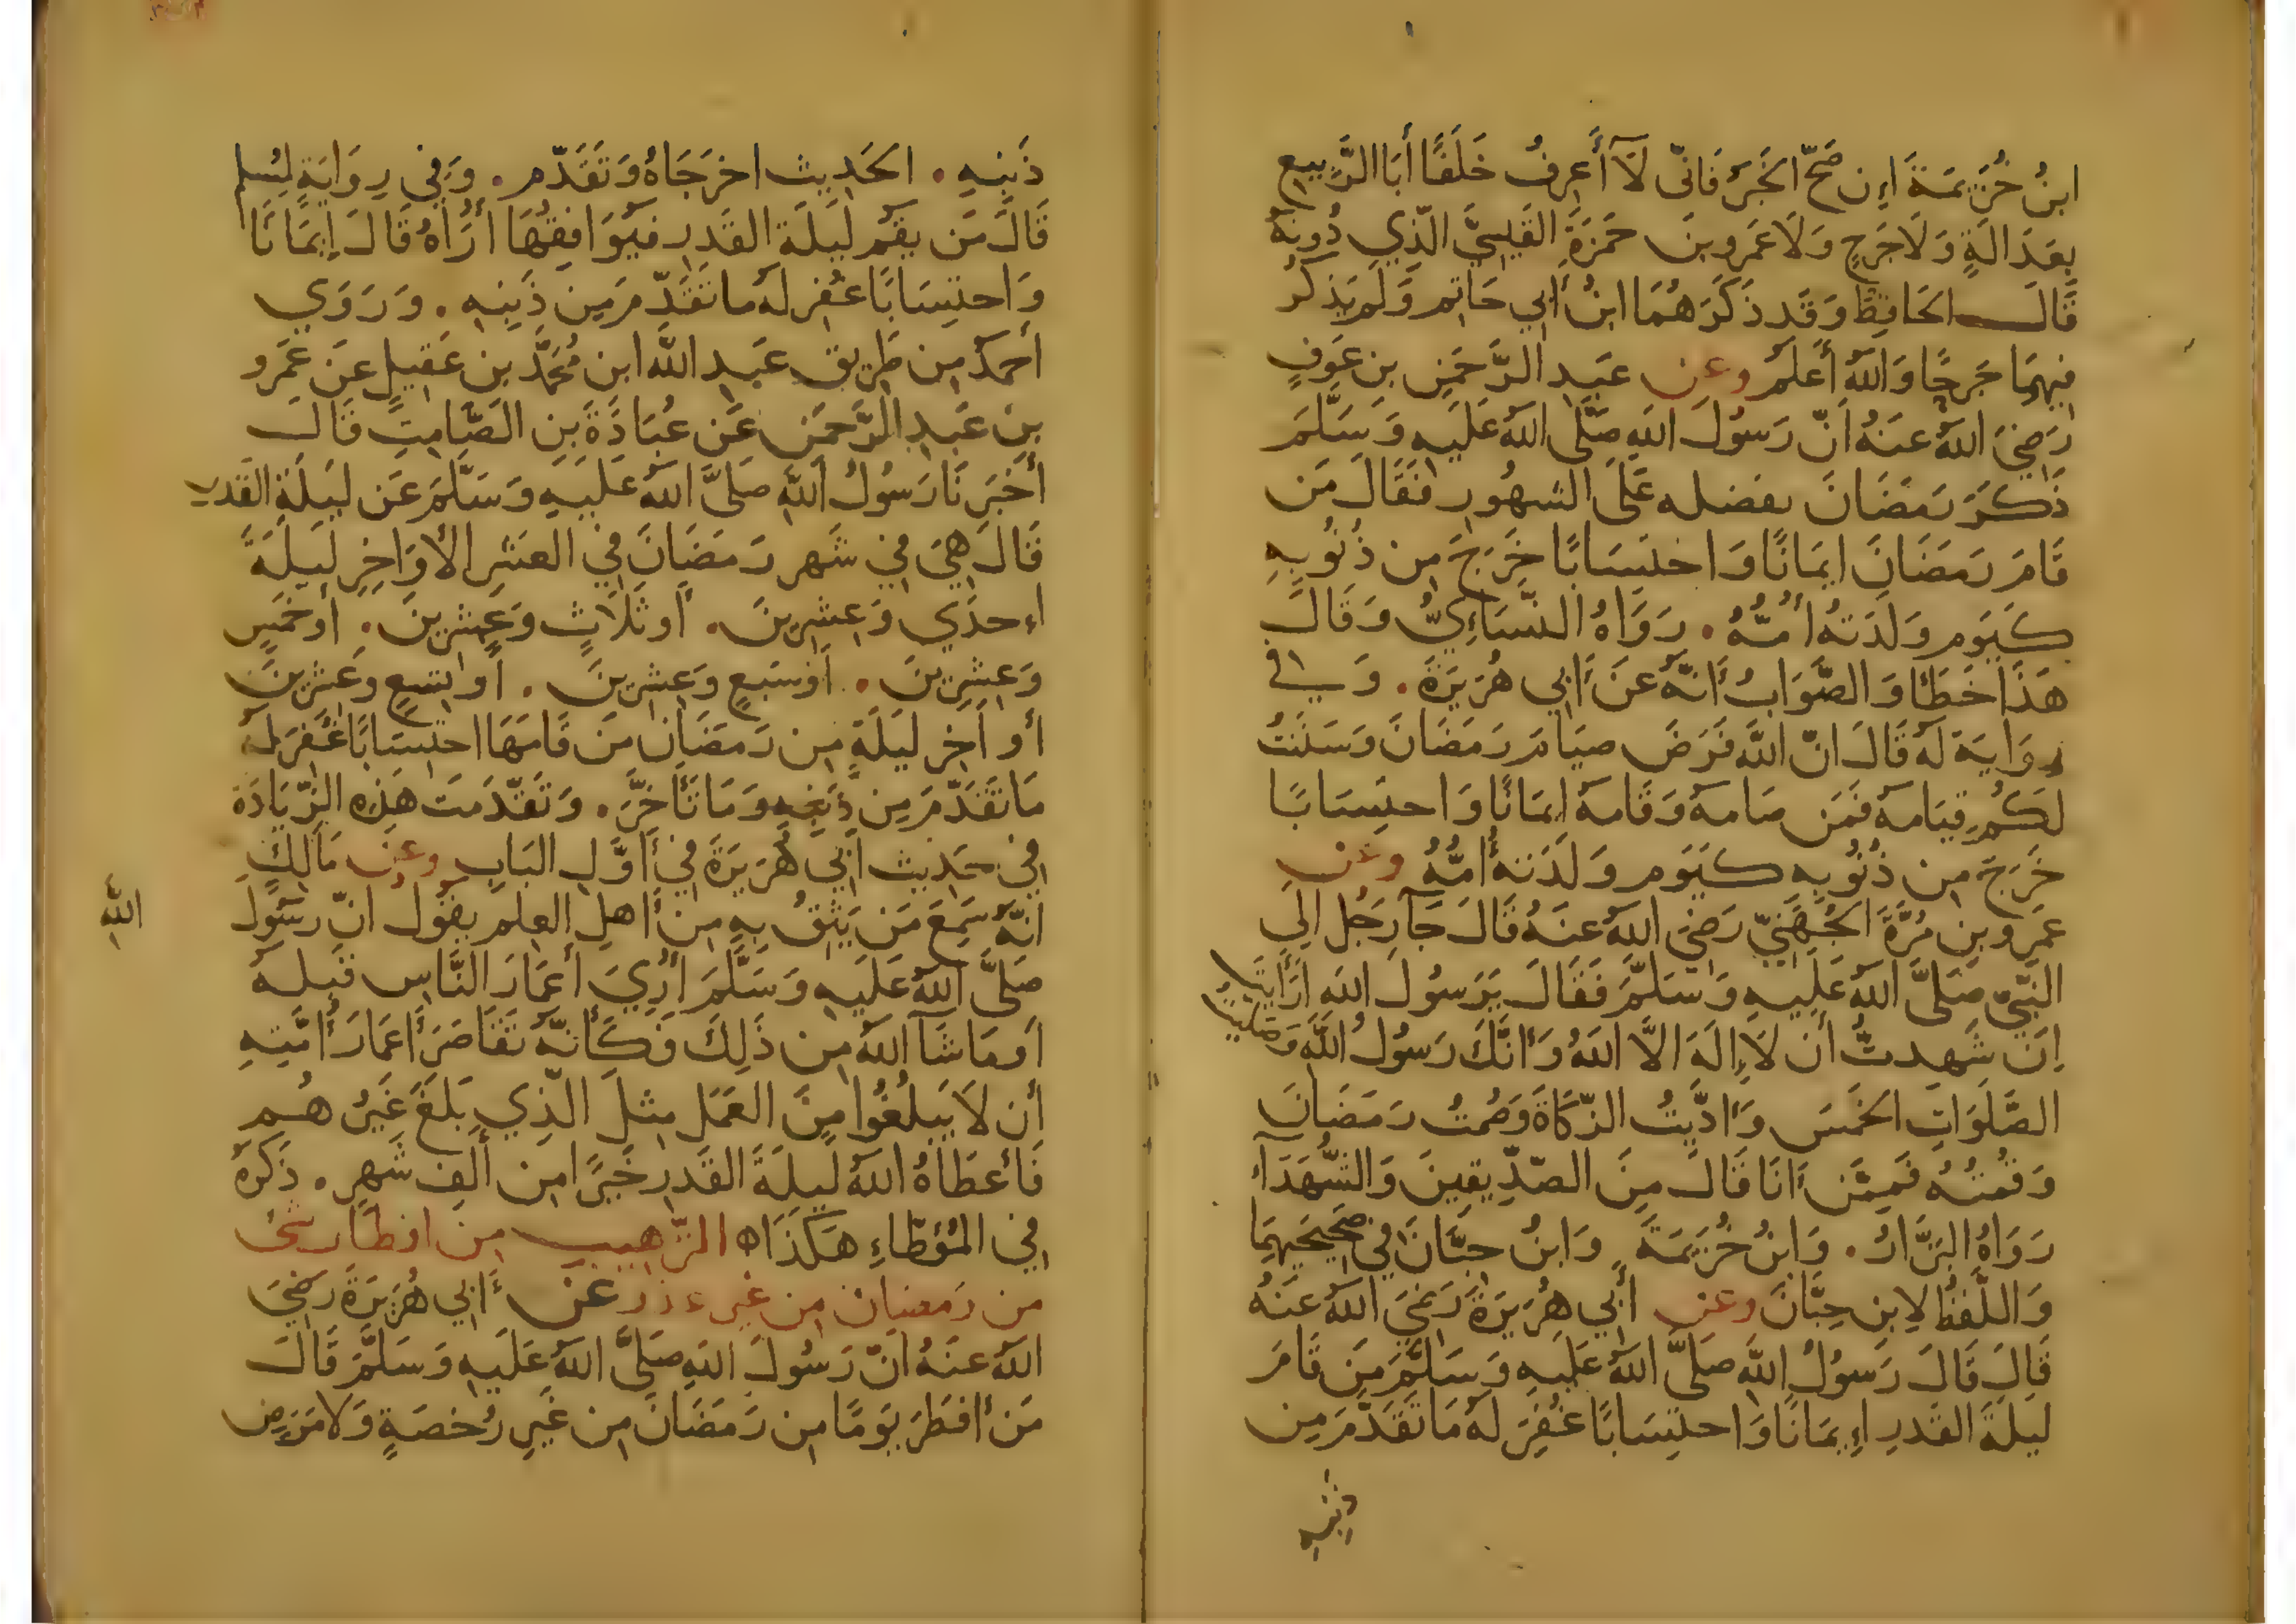 ابنُ خُزَيمَةَ اِن صَحَّ الخَبَرُ فَانّى لَآ أَعرِفُ خَلَفًا أَبَا الرَّبِيعِ
بِعَدَالَةٍ وَلَا جَرحٍ وَلَا عَمَرو بنَ حَمزَةَ القَيسِيَّ الَّذِي دُونَهُ
قَالَ الحَافِظُ وَقَد ذَكَرَهُمَا ابنُ أَبِي حَاتِم وَلَم يَذكُر
فِيهِمَا جَرحًا وَاللّهُ أَعلَمُ وعن عَبدِ الرَّحمَنِ بنِ عَوفٍ
رَضِيَ اللّهُ عَنهُ انَّ رَسُولَ اللّهِ صَلَّى اللّهُ عَلَيهِ وَسَلَّمَ
ذَكَرَ رَمَضَانَ بفضله عَلَى الشهُورِ فَقَالَ مَن
قَامَ رَمَضَانَ ايمَانًا وَاحتِسَابًا خَرَجَ مِن ذُنُوبِهِ
كَيَومِ وَلَدَتهُ أُمُّهُ . رَوَاهُ النَّسَاءِيُّ وَقَالَ
هَذَا خَطَأ وَالصَّوَابُ أَنَّهُ عَن أَبِي هُرَيرَةَ . وَفِي
رِوَايَة لَهُ قَالَ انَّ اللّهَ فَرَضَ صِيَامَ رَمَضَانَ وَسَنَنتُ
لَكُم قِيَامَهُ فَمَن صَامَهُ وَقَامَهُ اِيمَانًا وَاحتِسَابًا
خَرَجَ مِن ذُنُوبِهِ كَيَومِ وَلَدَتهُ أُمُّهُ وعن
عَمرِو بنِ مُرَّةَ الجُهَنِيّ رَضِيَ اللّهُ عَنهُ قَالَ جَآ رَجُل اِلَى
النَّبِيّ صَلَّى اللّهُ عَلَيهِ وَسَلَّمَ فَقَالَ يَرَسُولَ اللّهِ أَرَأَيتَ
اِن شَهِدتُّ أَن لَا إِلَهَ الَّا اللّهُ وَأَنَّكَ رَسُولُ اللّهِ وَصَلَّيتُ
الصَّلَوَاتِ الخَمسَ وَأَدَّيتُ الزَّكَاةَ وَصُمتُ رَمَضَانَ
وَقُمتُهُ فَمِمَّن أَنَا قَالَ مِنَ الصِّدِّيقِينَ وَالشُّهَدَآءِ
رَوَاهُ البَزَّارُ . وَابنُ خُزَيمَةَ وَابنُ حِبَّانَ فِي صَحِيحَيهِمَا
وَاللَّفظُ لِابنِ حِبَّانَ وعن أَبِي هُرَيرَةَ رَضِيَ اللّهُ عَنهُ
قَالَ قَالَ رَسُولُ اللّهِ صَلَّى اللّهُ عَلَيهِ وَسَلَّمَ مَن قَامَ
لَيلَةَ القَدرِ اِيمَانًا وَاحتِسَابًا غُفِرَ لَهُ مَا تَقَدَّمَ مِن
ذَنبِهِ
ذَنبِهِ . الحَدِيث اخرَجَاهُ وَتَقَدَّم . وَفِي رِوَايَةٍ لِمُسلِم
قَالَ مَن يَقُم لَيلَةَ القَدرِ فَيُوَافِقُهَا أُرَاهُ قَالَ إِيمَانًا
وَاحتِسَابًا غُفِرَ لَهُ مَا تَقَدَّمَ مِن ذَنبِهِ . وَرَوَي
أَحمَدُ مِن طَرِيقِ عَبدِ اللّه ابن مُحَمَّدِ بنِ عَقِيلٍ عَن عَمرِو
بنِ عَبدِ الرَّحمَنِ عَن عُبَادَةَ بنِ الصَّامِتِ قَالَ
أَخبَرَنَا رَسُولُ اللّهِ صَلَّى اللّهُ عَلَيهِ وَسَلَّمَ عَن لَيلَةِ القَدرِ
قَالَ هِيَ فِي شَهرِ رَمَضَانَ فِي العَشرِ الأَوَاخِرِ لَيلَةَ
اِحدَي وَعِشرِينَ . أَو ثَلَاثٍ وَعِشرِينَ . أَو خَمسٍ
وَعِشرِينَ . أَو سَبعٍ وَعِشرِينَ . أَو تِسعٍ وَعِشرِينَ
أَو آخِرِ لَيلَةٍ مِن رَمَضَانَ مَن قَامَهَا احتِسَابًا غُفِرَ لَهُ
مَا تَقَدَّمَ مِن ذَنبِهِ وَمَا تَأَخَّرَ . وَتَقَدَّمَت هَذِهِ الزِّيَادَة
فِي حَدِيث أَبِي هُرَيرَةَ فِي أَوَّلِ البَابِ وعن مَالِكٍ
انَّهُ سَمِعَ مَن يَثِقُ بِهِ مِن أَهلِ العِلمِ يقُول انَّ رَسُولَ
اللّهِ
صَلَّى اللّهُ عَلَيهِ وَسَلَّمَ أُرِيَ أَعمَارَ النَّاسِ قَبلَهُ
أَو مَا شَآ اللّهُ مِن ذَلِكَ فَكَأَنَّهُ تَقَاصَرَ أَعمَارَ أُمَّتِهِ
أَن لَا يَبلُغُوا مِنَ العَمَلِ مِثلَ الَّذِي بَلَغَ غَيرُهُم
فَأَعطَاهُ اللّهُ لَيلَةَ القَدرِ خَيرًا مِن أَلفِ شَهرٍ . ذَكَرَهُ
فِي المُوَطَّاءِ هَكَذَا ه الترهيب من افطار شئ
من رمضان من غير عذر عن أَبِي هُرَيرَةَ رَضِيَ
اللّهُ عَنهُ انَّ رَسُولَ اللّهِ صَلَّى اللّهُ عَلَيهِ وَسَلَّمَ قَالَ
مَن أَفطَرَ يَومًا مِن رَمَضَانَ مِن غَيرِ رُخصَةٍ وَلَا مَرَضٍ